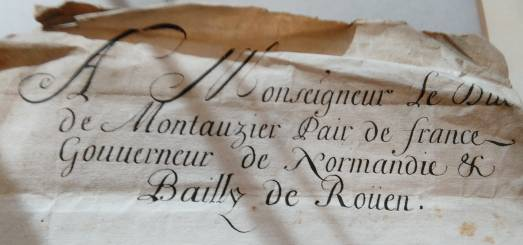 A Monseigneur Le Duc
de Montauzier Pair de france
Gouuerneur de Normandie &
Bailly de Roüen.